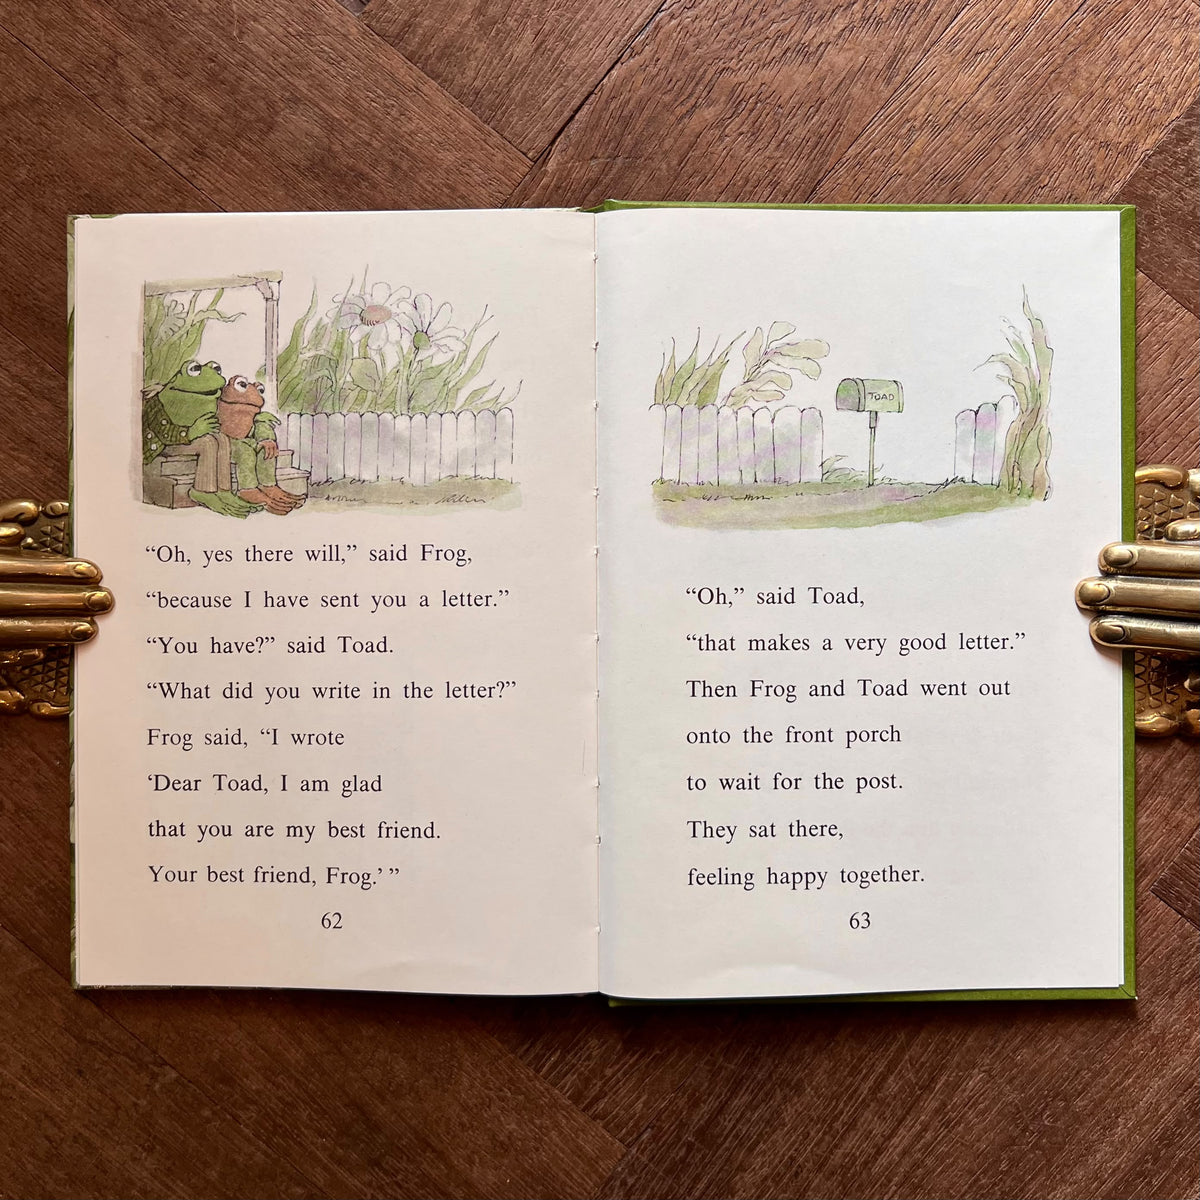 “Oh, yes there will,” said Frog,
“because I have sent you a letter.”
“You have?” said Toad.
“What did you write in the letter?”
Frog said, “I wrote
‘Dear Toad, I am glad
that you are my best friend.
Your best friend, Frog.’ ”
62
TOAD
“Oh,” said Toad,
“that makes a very good letter.”
Then Frog and Toad went out
onto the front porch
to wait for the post.
They sat there,
feeling happy together.
63